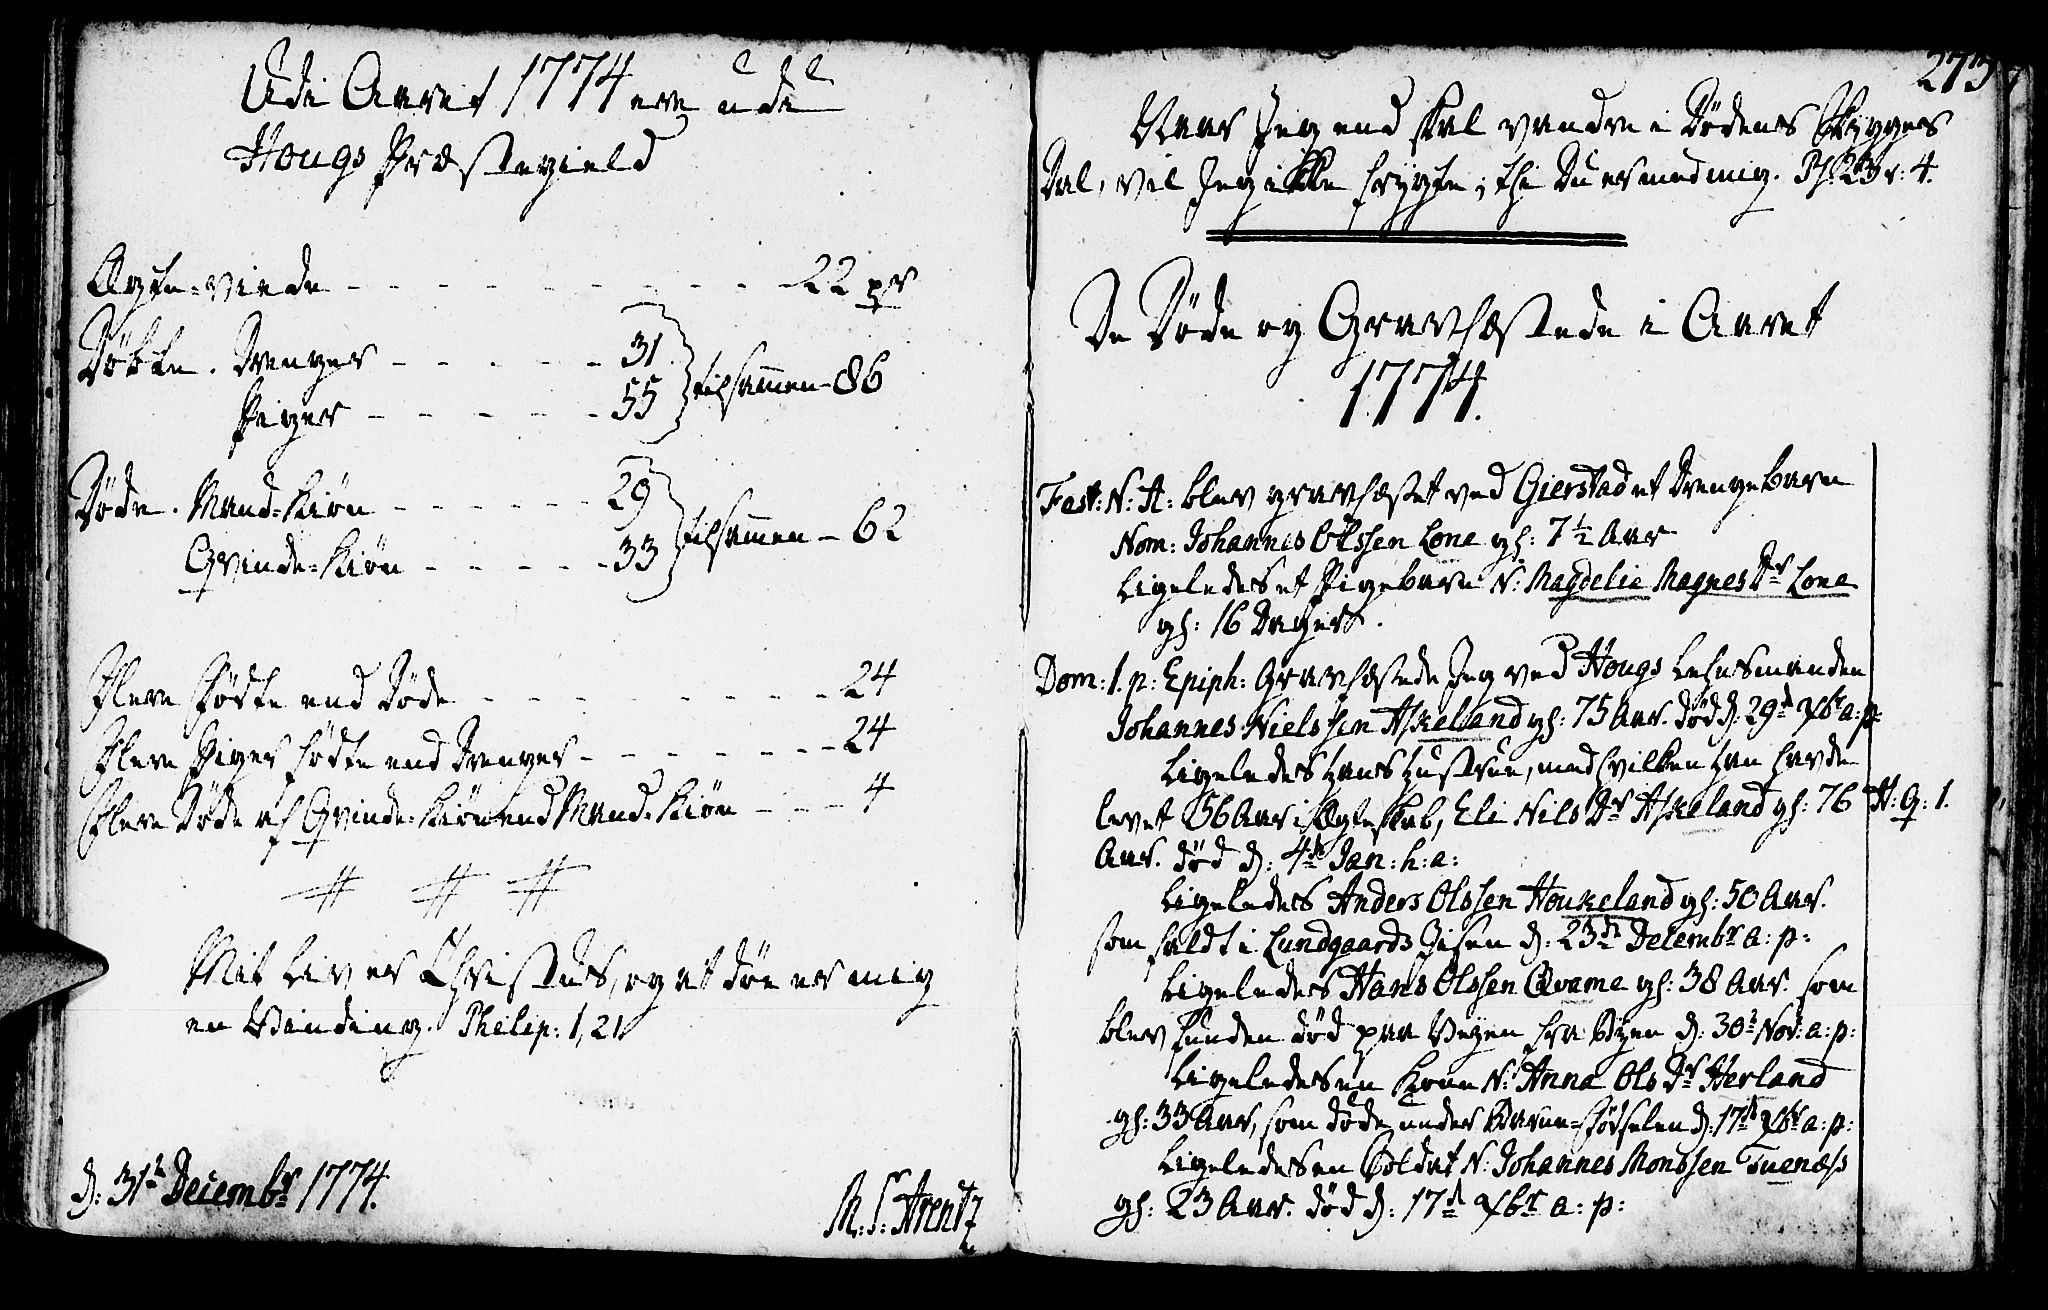 Udi Aaret 1774 ere udi
Hougs Præstegield
Ægte-viede - - - - - - - - - - - 22 pr
Døbte. Drenge - - - - - 31
Piger - - - - - 55 } tilsammen - 86
Døde. Mand-Kiøn - - - - - - 29
Qvinde-Kiøn - - - - - 33 } tilsammen - 62
Flere Fødte end Døde - - - - - - - - - 24
Flere Piger fødte end Drenger - - - - - - - 24
Flere Døde af Qvinde-Kiøn end Mand-Kiøn - - - 4
Mit Liv er Christus, og at døe er mig
en Vinding. Philip: 1, 21
d: 31te Decembr 1774.
M. S: Arentz
273
Naar Jeg end skal vandre i Dødens Skygges
Dal, vil Jeg ikke frygte; thi Du er med mig. Ps: 23 v: 4.
De Døde og Gravfæstede i Aaret
1774.
Fest: N: A: blev gravfæstet ved Gierstad et Drengebarn
Nom: Johannes Olssen Lone gl: 7½ Aar
Ligeledes et Pigebarn N: Magdelie Magnes Dr Lone
gl: 16 Dager.
Dom: 1. p: Epiph: Gravfæstede Jeg ved Hougs Lehnsmanden
Johannes Nielssen Askeland gl: 75 Aar. død d: 29de Xbr a: p:
Ligeledes hans Hustrue, med hvilken han havde
levet 56 Aar i Ægteskab, Eli Nils Dr Askeland gl: 76
H: Q: 1.
Aar. død d: 4de Jan: h: a:
Ligeledes Anders Olssen Houkeland gl: 50 Aar.
som faldt i Lundgaards Jisen d: 23de Decembr a: p:
Ligeledes Hans Olssen Qvame gl: 38 Aar. som
blev funden død paa Veyen fra Byen d: 30te Nov: a: p:
Ligeledes en Kone N: Anna Ols Dr Herland
gl: 33 Aar, som døde under Barne-fødselen d: 17de Xbr a: p:
Ligeledes en Soldat N: Johannes Monssen Tuenæs
gl: 23 Aar. død d: 17de Xbr a: p: